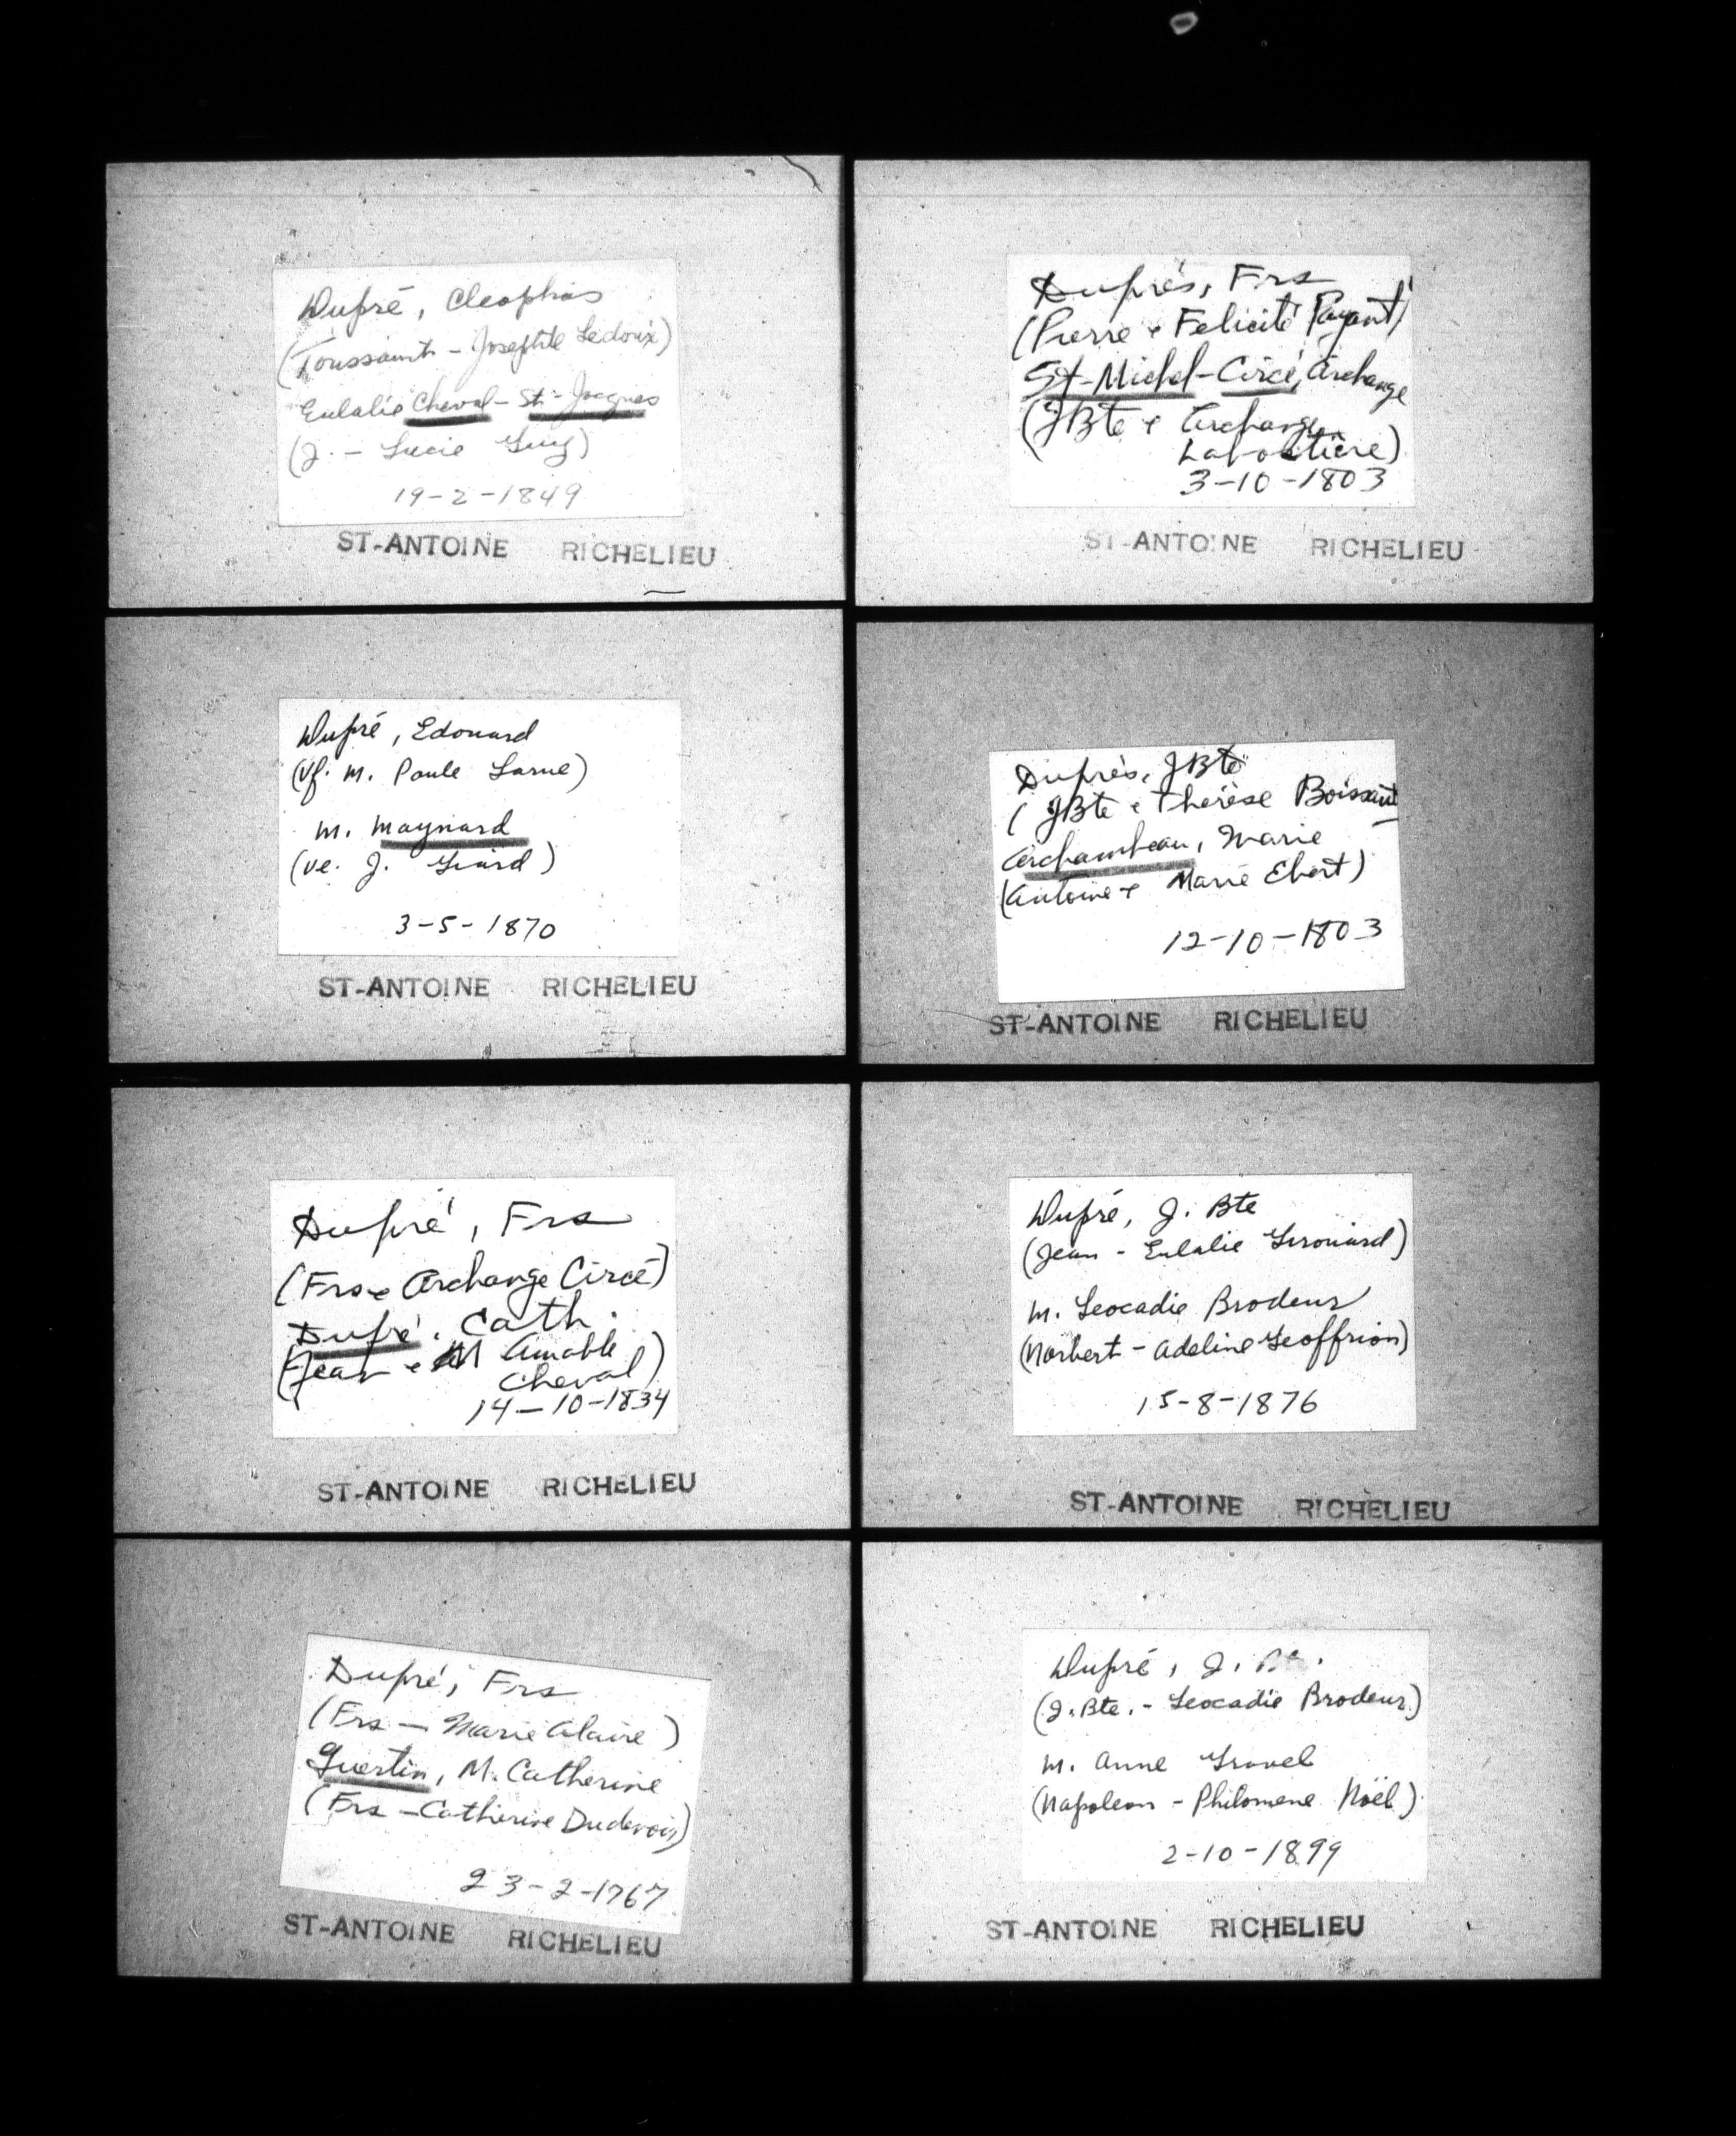 Dupré, Cleophas
(Toussaint - Josephte Ledoux)
Eulalie Cheval - St-Jacques
(J. - Lucie Guy)
19-2-1849
ST-ANTOINE RICHELIEU
Duprés, Frs
(Pierre & Felicité Payant)
St-Michel-Circé, Archange
(JBte & Archange
Laportière)
3-10-1803
ST-ANTOINE RICHELIEU
Dupré, Edouard
(Vf. M. Paule Larue)
M. Maynard
(Ve. J. Giard)
3-5-1870
ST-ANTOINE RICHELIEU
Duprés, JBte
(JBte & Therèse Boissant
Archambeau, Marie
(Antoine & Marie Ebert)
12-10-1803
ST-ANTOINE RICHELIEU
Dupré, Frs
(Frs & Archange Circé)
Dupré, Cath.
(Jean & M Amable
Cheval)
14-10-1834
ST-ANTOINE RICHELIEU
Dupré, J. Bte
(Jean - Eulalie Girouard)
M. Leocadie Brodeur
(Norbert - Adeline Geoffrion)
15-8-1876
ST-ANTOINE RICHELIEU
Dupré, Frs
(Frs - Marie Alaire)
Guertin, M. Catherine
(Frs - Catherine Dudevoir)
23-2-1767
ST-ANTOINE RICHELIEU
Dupré, J. Bte.
(J. Bte. - Leocadie Brodeur)
M. Anne Gravel
(Napoleon - Philomene Noël)
2-10-1899
ST-ANTOINE RICHELIEU